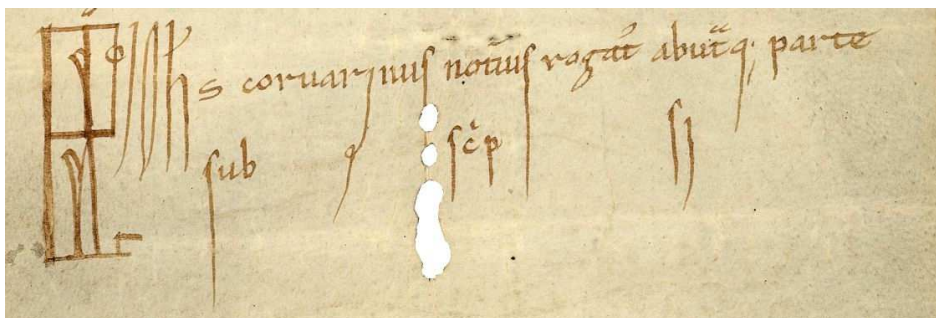 corvarinus notꝰius rogat̄ abut̄q; parte
sub sc̄p si